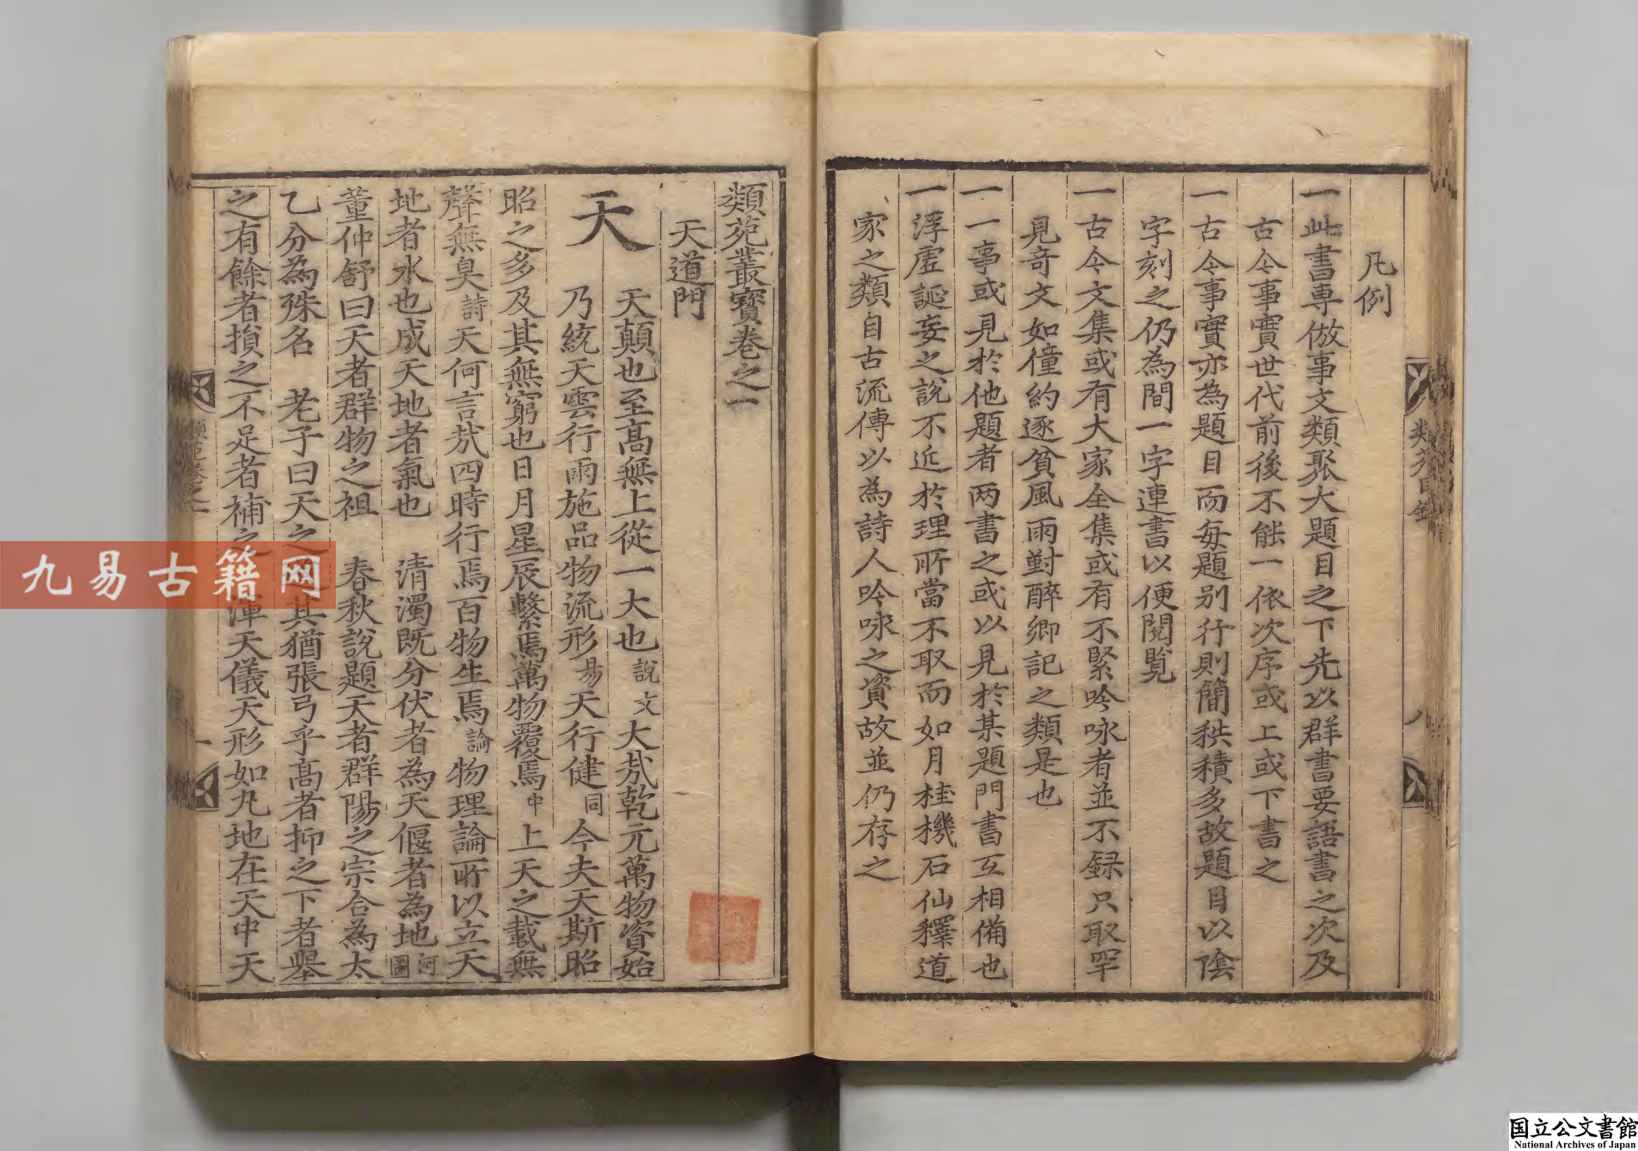 凡例
一此書專倣事文類聚大題目之下先以群書要語書之次及
古今事實世代前後不能一依次序或上或下書之
一古今事實亦為題目而每題別行則簡秩積多故題目以陰
字刻之仍為間一字連書以便閱覧
一古今文集或有大家全集或有不緊吟咏者並不録只取罕
見奇文如僮約逐貧風雨對醉鄉記之類是也
一一事或見於他題者兩書之或以見於某題門書互相備也
一浮虛誕妄之說不近於理所當不取而如月桂機石仙釋道
家之類自古流傳以為詩人吟咏之資故並仍存之
類苑叢寶卷之一
天道門
天
天顛也至高無上從一大也說文大哉乾元萬物資始
乃統天雲行雨施品物流形易天行健同今夫天斯昭
昭之多及其無窮也日月星辰繫焉萬物覆焉中上天之載無
聲無臭詩天何言哉四時行焉百物生焉論物理論所以立天
地者水也成天地者氣也 清濁既分伏者為天偃者為地河圖
董仲舒曰天者群物之祖 春秋說題天者群陽之宗合為太
乙分為殊名 老子曰天之其猶張弓乎高者抑之下者舉
之有餘者損之不足者補之渾天儀天形如丸地在天中天
九易古籍网
国立公文書館
National Archives of Japan